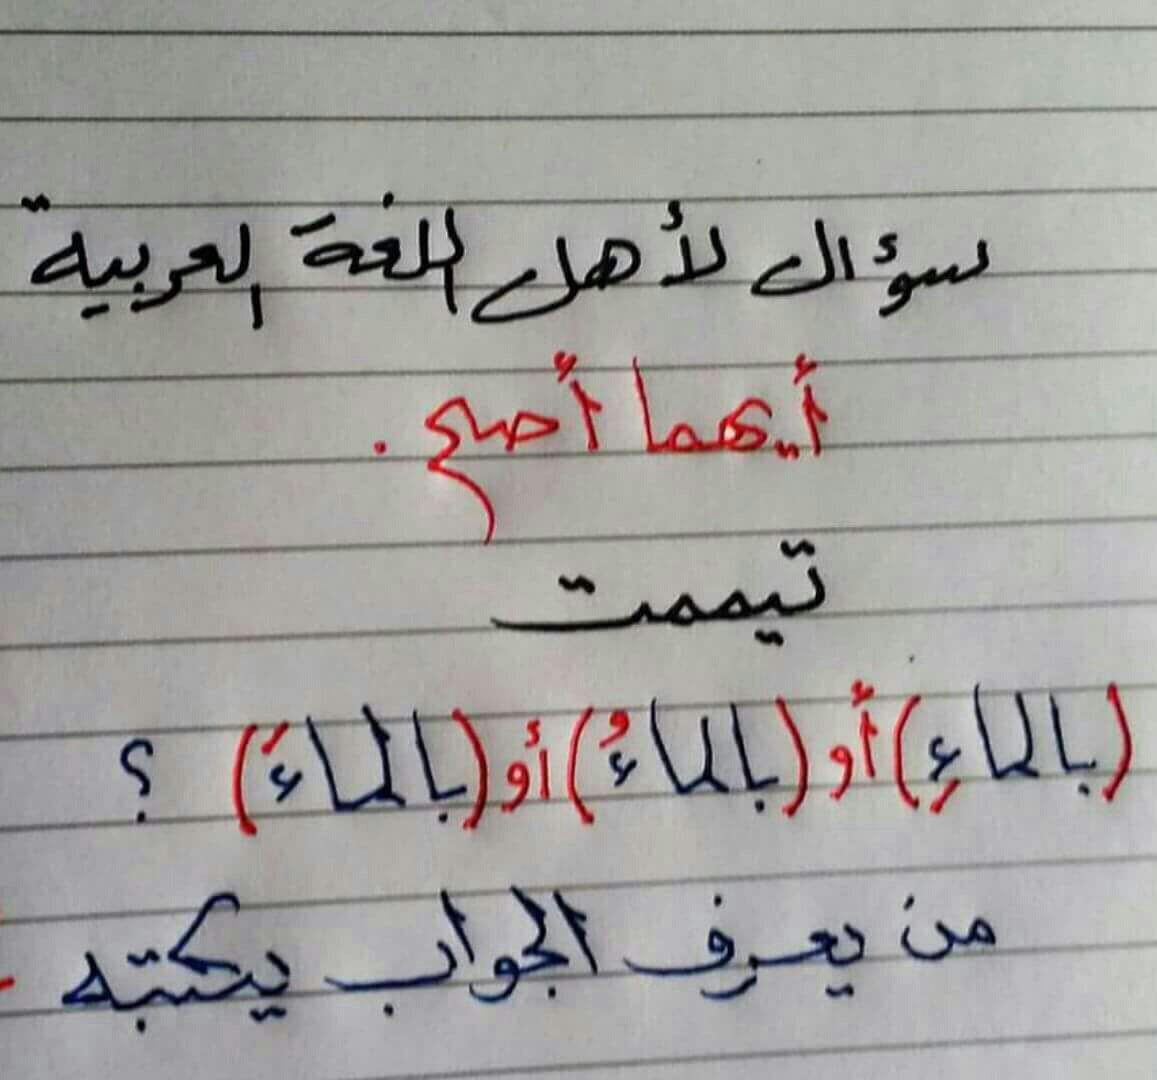 سؤال لأهل اللغة العربية
أيهما أصح .
تيممت
(بالماءِ) أو (بالماءُ) أو (بالماءَ) ؟
من يعرف الجواب يكتبه